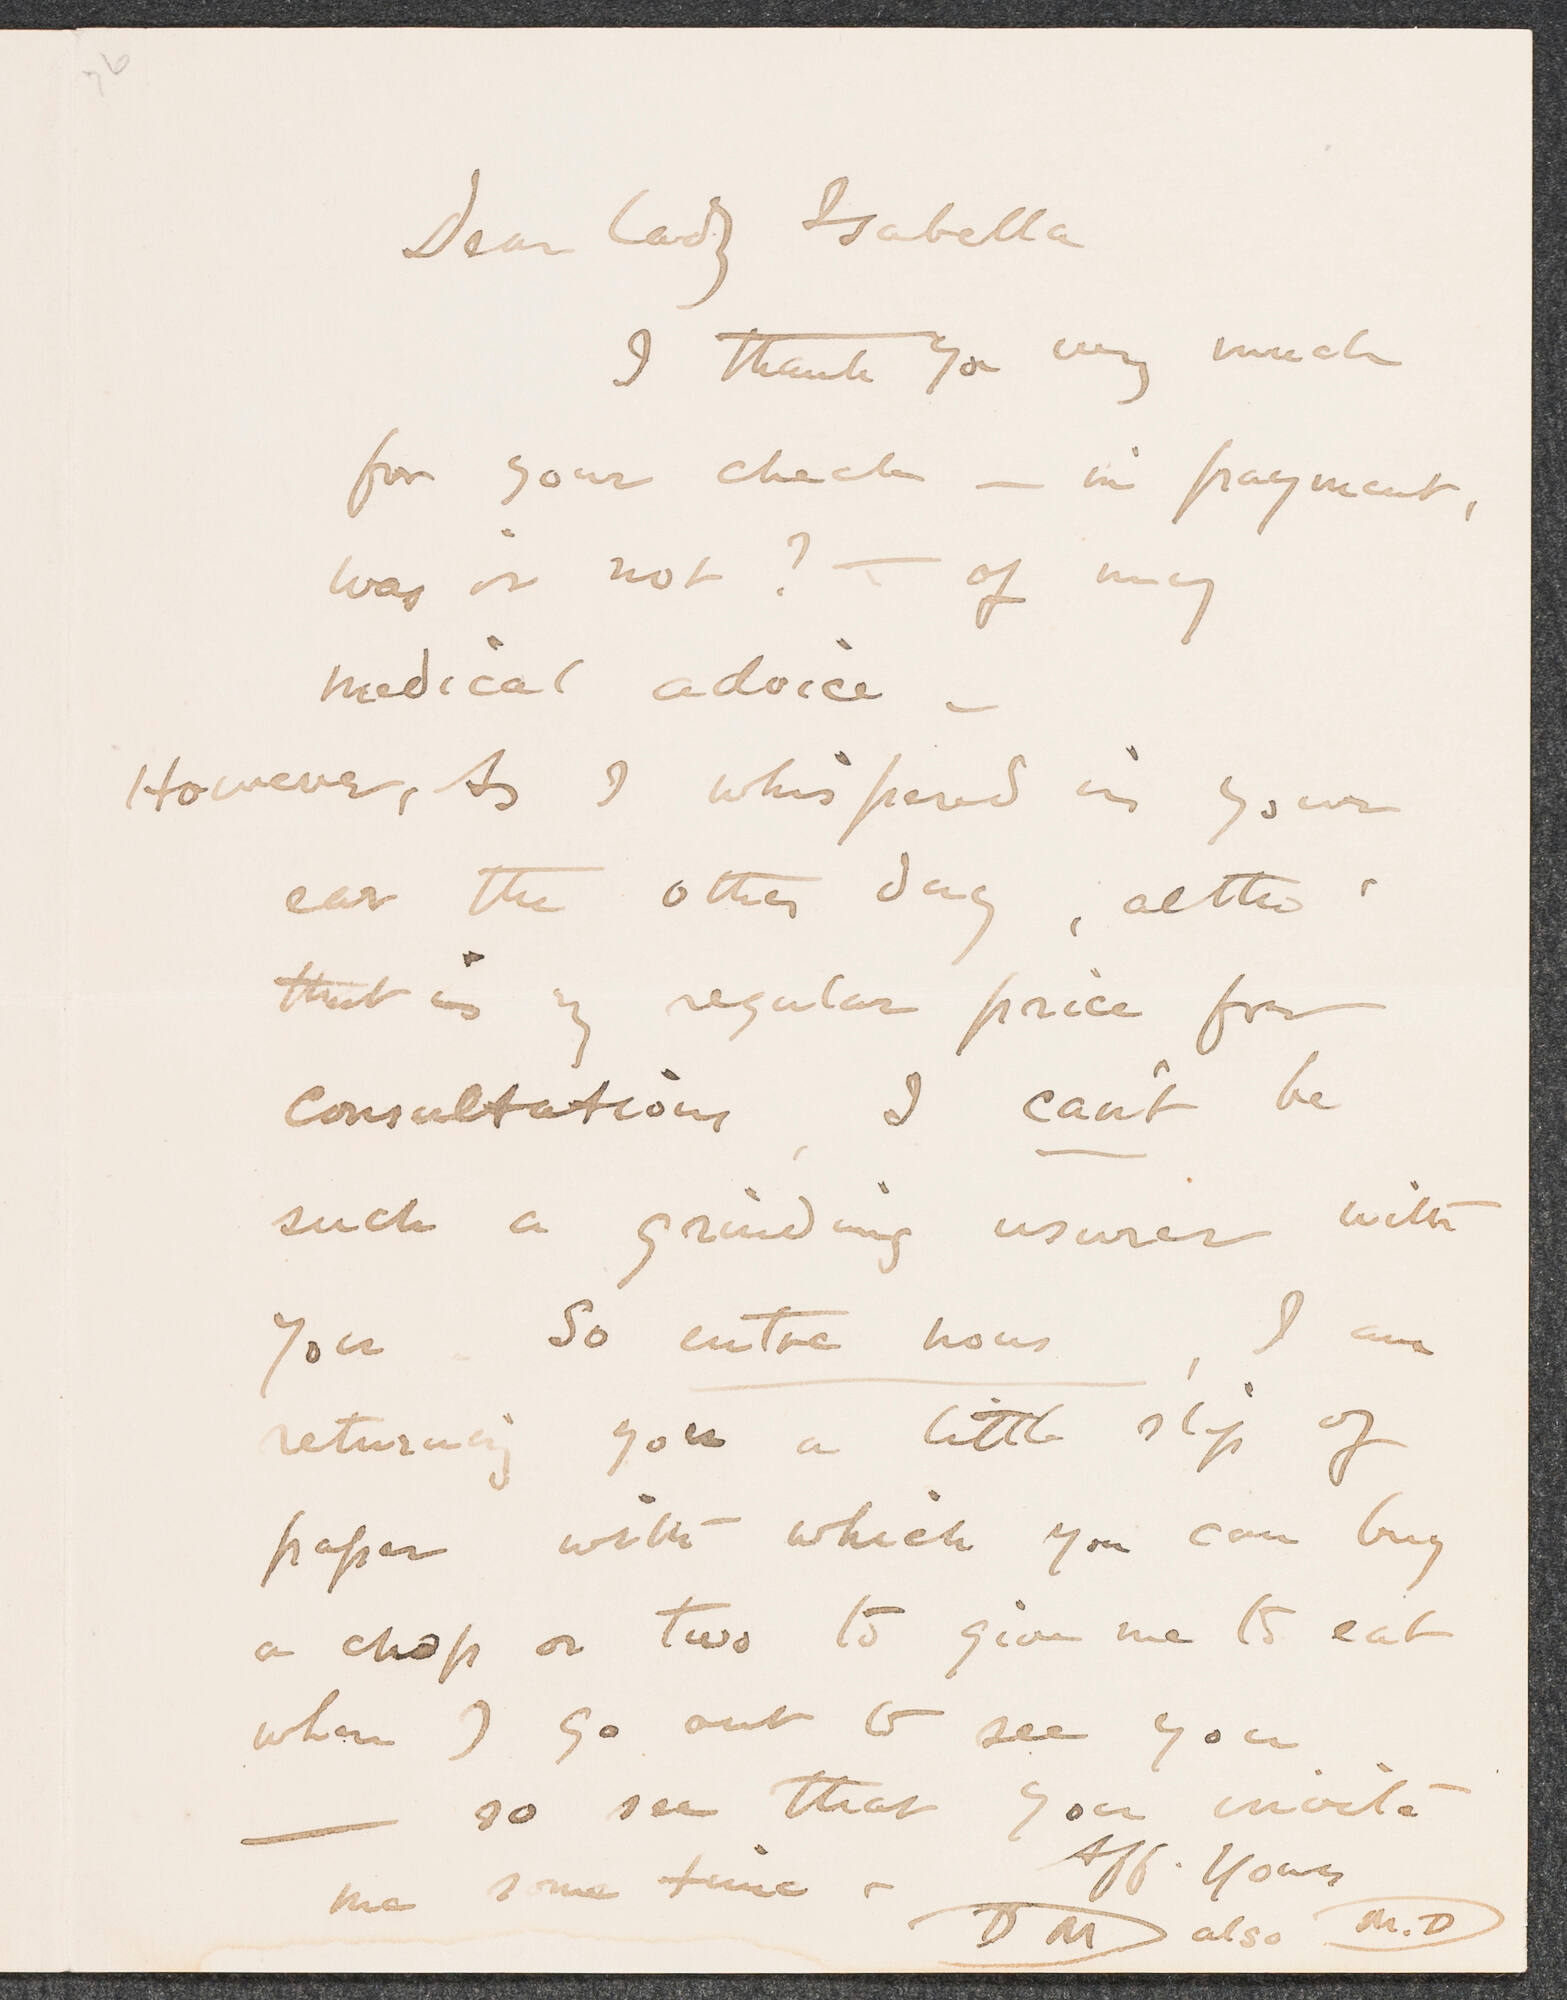 76
Dear Lady Isabella
I thank you very much
for your check — in payment,
was it not? — of my
medical advice —
However, As I whispered in your
ear the other day, altho'
that is my regular price for
consultations, I can't be
such a grinding usurer with
you. So entre nous, I am
returning you a little slip of
paper with which you can buy
a chop or two to give me to eat
when I go out to see you
— so see that you invite
me some time - Aff. Yours
D M also M.D